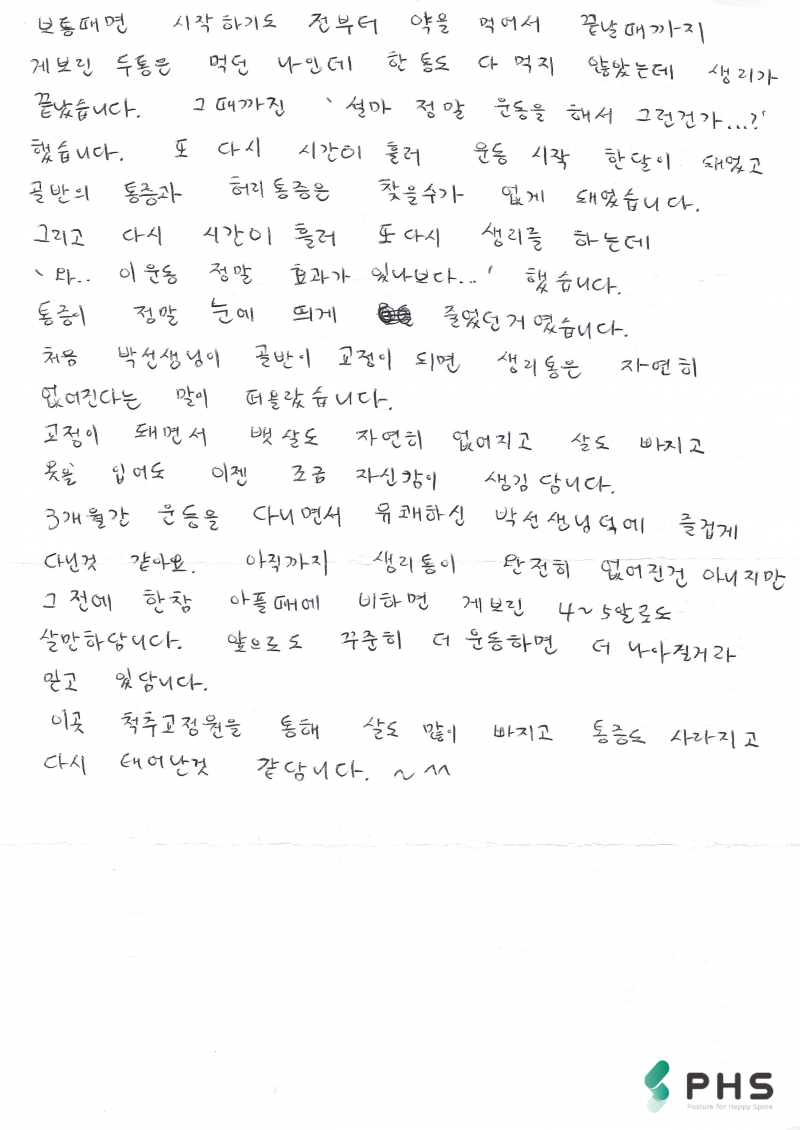 보통때면 시작하기도 전부터 약을 먹어서 끝날때까지
게보린 두통은 먹던 나인데 한통도 다 먹지 않았는데 생리가
끝났습니다. 그때까진 '설마 정말 운동을 해서 그런건가...?'
했습니다. 또 다시 시간이 흘러 운동 시작 한달이 돼었고
골반의 통증과 허리통증은 찾을수가 없게 돼었습니다.
그리고 다시 시간이 흘러 또다시 생리를 하는데
'와.. 이운동 정말 효과가 있나보다...' 했습니다.
통증이 정말 눈에 띄게 줄었던거였습니다.
처음 박선생님이 골반이 교정이 되면 생리통은 자연히
없어진다는 말이 떠올랐습니다.
교정이 돼면서 뱃살도 자연히 없어지고 살도 빠지고
옷을 입어도 이젠 조금 자신감이 생김답니다.
3개월간 운동을 다니면서 유쾌하신 박선생님덕에 즐겁게
다닌것 같아요. 아직까지 생리통이 완전히 없어진건 아니지만
그 전에 한참 아플때에 비하면 게보린 4~5알로도
살만하답니다. 앞으로도 꾸준히 더 운동하면 더 나아질거라
믿고 있답니다.
이곳 척추교정원을 통해 살도 많이 빠지고 통증도 사라지고
다시 태어난것 같답니다. ~ ^^
PHS
Posture for Happy Spine